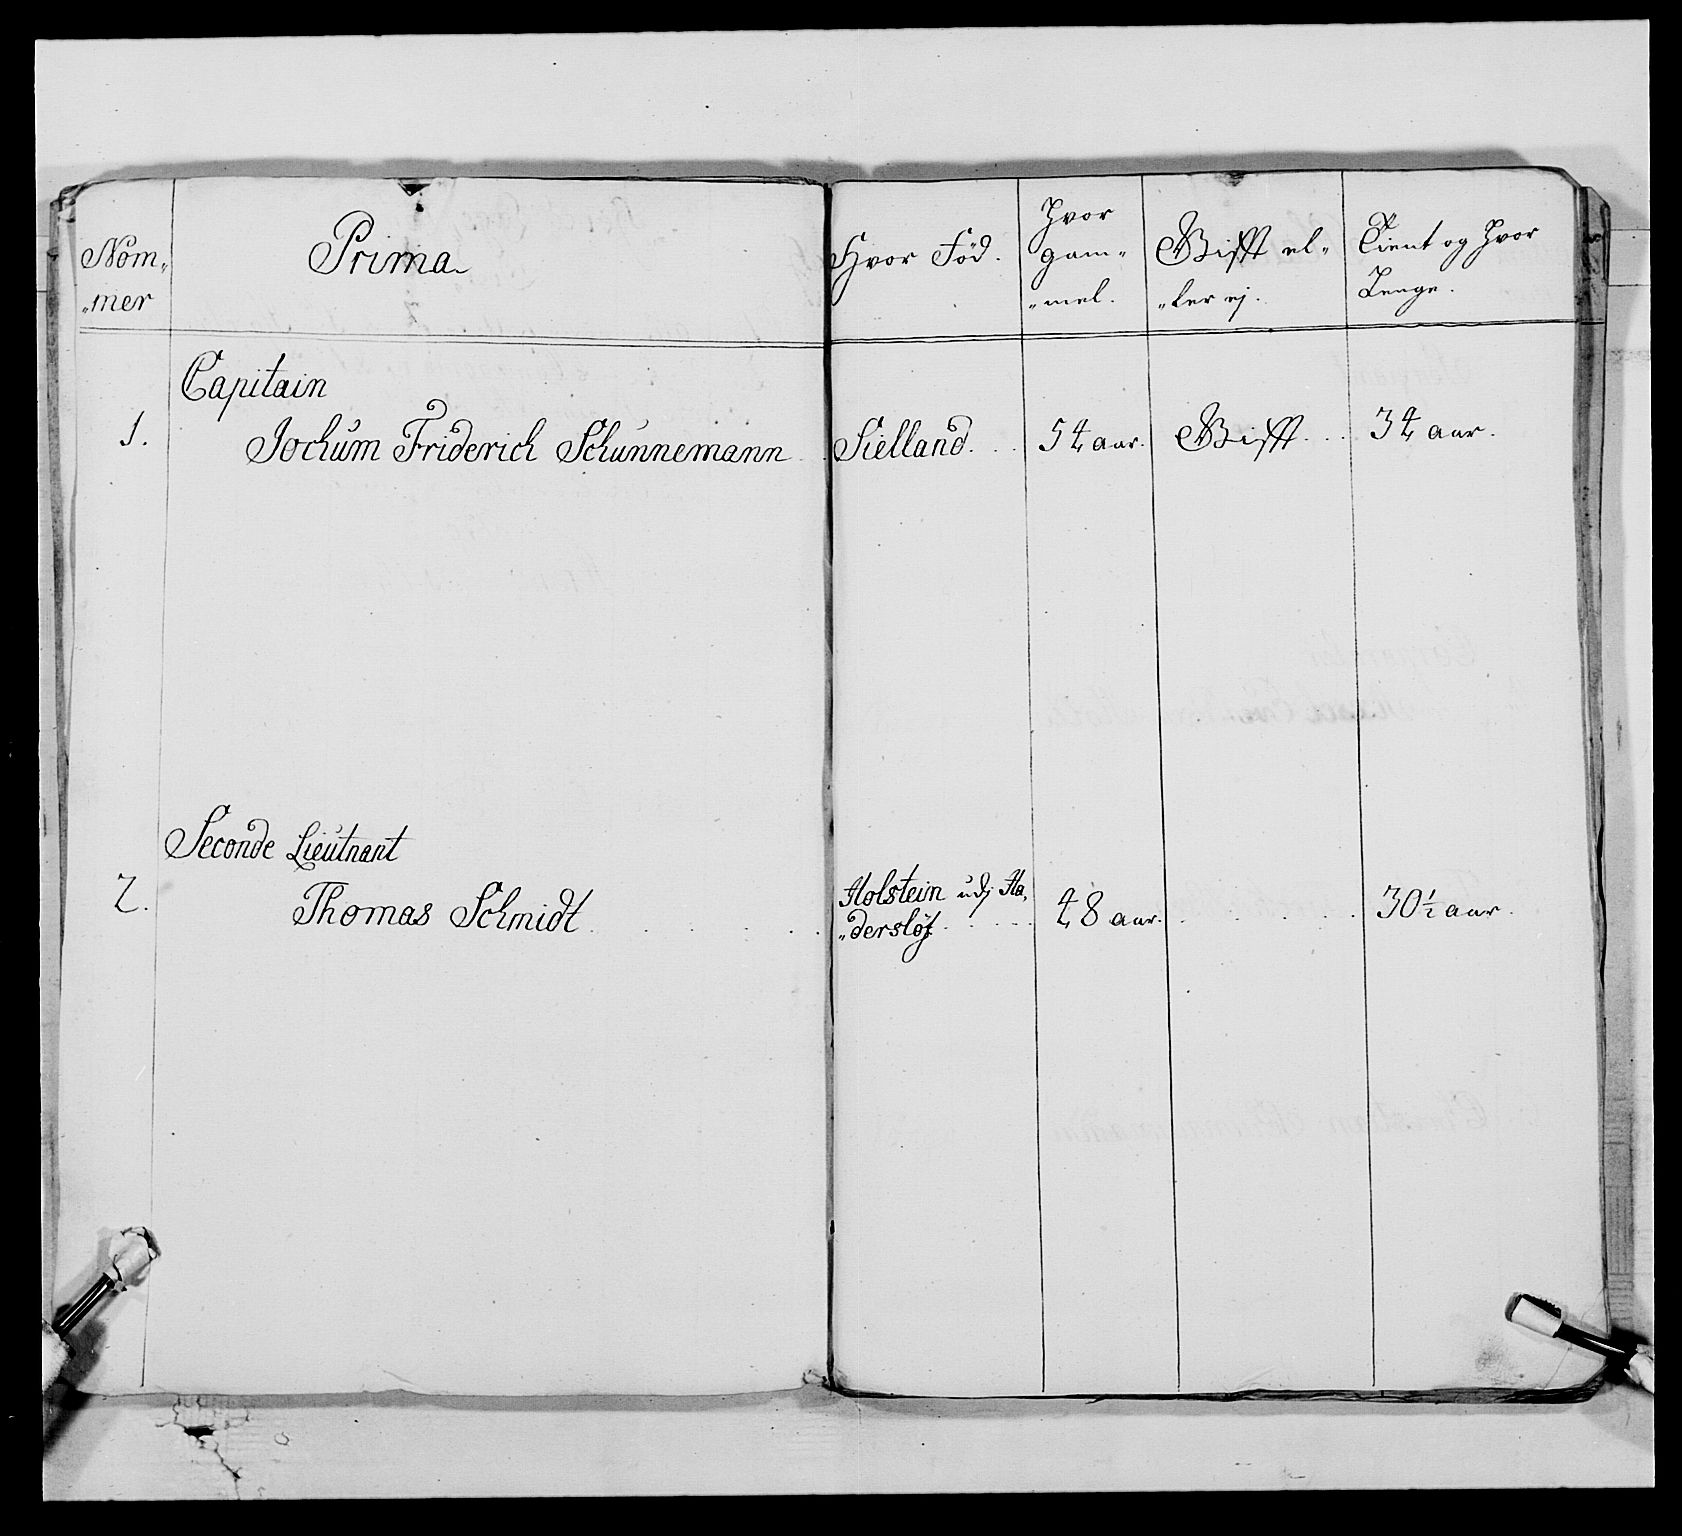 Nom„
„mer
Prima
Hvor Föd.
Hvor
gam„
„mel.
Gifft el„
„ler ej.
Tient og Hvor
Lenge.
Capitain
1.
Jochum Friderich Schunnemann
Sielland
54 aar.
Gifft
34 aar.
Seconde Lieutnant
2.
Thomas Schmidt
Holstein udj Ha„
„derslöf
48 aar.
30½ aar.